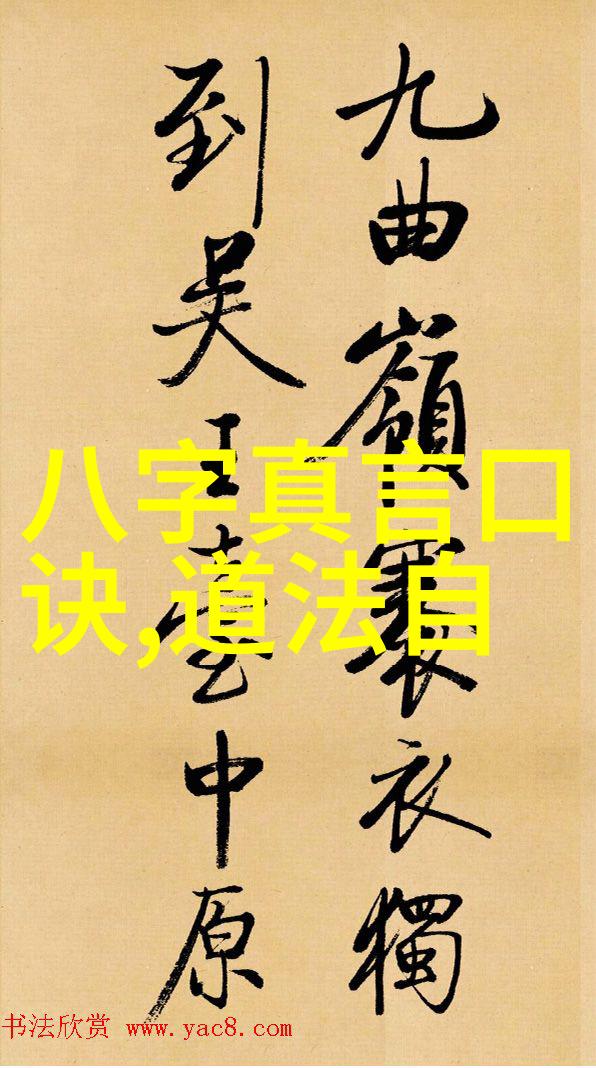 九曲嶺褰衣獨
到吴王臺中原
八字真言口
诀,道法自
书法欣赏 www.yac8.com